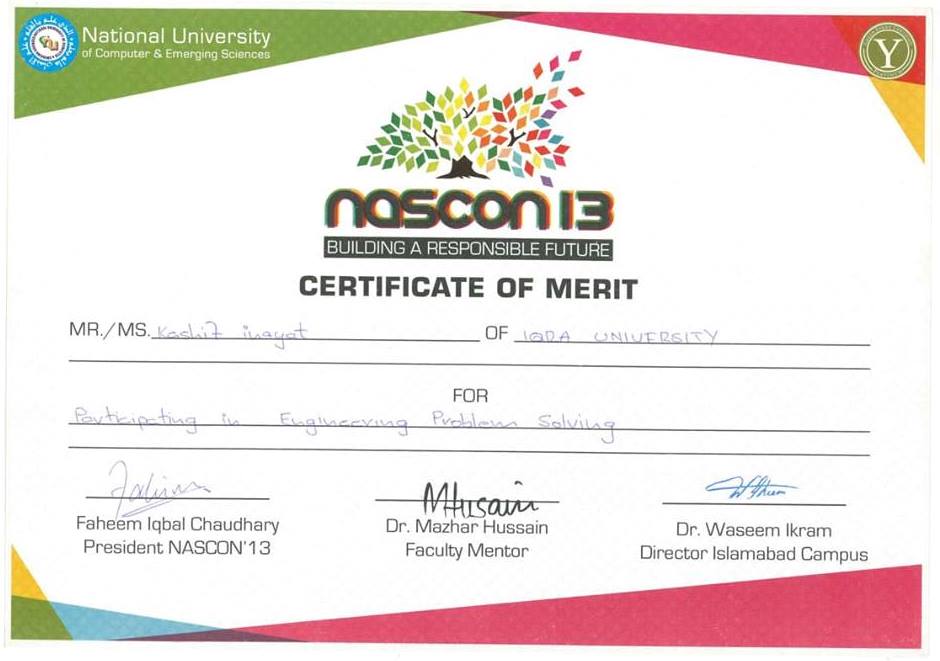 National University
of Computer & Emerging Sciences
Y
nascon 13
BUILDING A RESPONSIBLE FUTURE
CERTIFICATE OF MERIT
MR./MS. Kashif inayat OF IQRA UNIVERSITY
FOR
Participating in Engineering Problem Solving
MHusain
Faheem Iqbal Chaudhary
President NASCON'13
Dr. Mazhar Hussain
Faculty Mentor
Dr. Waseem Ikram
Director Islamabad Campus